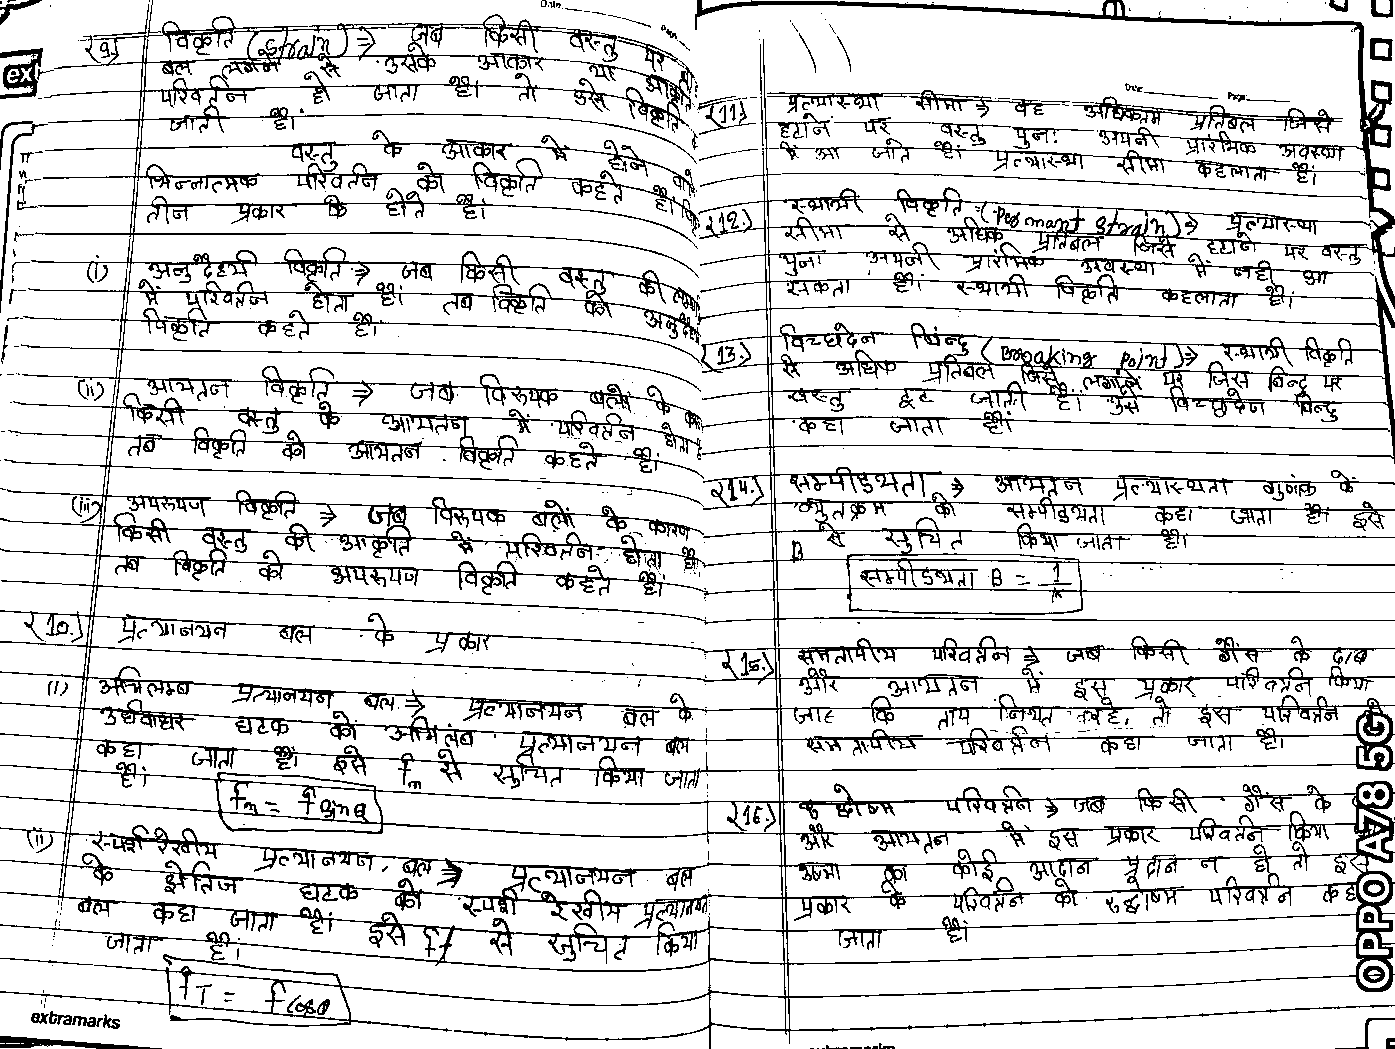 (9) विकृति (Strain) ⇒ जब किसी वस्तु पर
बल लगाने से उसके आकार या आकृति
परिवर्तन हो जाता है। तो उसे विकृति
जाती है।
वस्तु के आकार में होने वाले
भिन्नात्मक परिवर्तन को विकृति कहते है।
तीन प्रकार कि होते है।
(i) अनुदैर्ध्य विकृति ⇒ जब किसी वस्तु की
में परिवर्तन होता है। तब विकृति को अनुदैर्ध्य
विकृति कहते है।
(ii) आयतन विकृति ⇒ जब विरूपक बलों के
किसी वस्तु के आयतन में परिवर्तन होता
तब विकृति को आयतन विकृति कहते है।
(iii) अपरूपण विकृति ⇒ जब विरूपक बलों के कारण
किसी वस्तु की आकृति में परिवर्तन होता है।
तब विकृति को अपरूपण विकृति कहते है।
(10.) प्रत्यानयन बल के प्रकार
(i) अभिलम्ब प्रत्यानयन बल ⇒ प्रत्यानयन बल के
उर्ध्वाधर घटक को अभिलंब प्रत्यानयन बल
कहा जाता है। इसे fn से सुचित किया जाता
है।
fn = f sinθ
(ii) स्पर्श रेखीय प्रत्यानयन बल ⇒ प्रत्यानयन बल
के क्षैतिज घटक को स्पर्श रेखीय प्रत्यानयन
बल कहा जाता है। इसे ff से सुचित किया
जाता है।
fT = f cosθ
extramarks
(11.) प्रत्यास्था सीमा ⇒ वह अधिकतम प्रतिबल जिसे
हटाने पर वस्तु पुनः अपनी प्रारंभिक अवस्था
में आ जाते है। प्रत्यास्था सीमा कहलाता है।
(12.) स्थायी विकृति (Permant Strain) ⇒ प्रत्यास्था
सीमा से अधिक प्रतिबल जिसे हटाने पर वस्तु
पुनः अपनी प्रारंभिक अवस्था में नही आ
सकता है। स्थायी विकृति कहलाता है।
(13.) विच्छदेन बिन्दु (Breaking point) ⇒ स्थायी विकृति
से अधिक प्रतिबल जिसे लगाने पर जिस बिन्दु पर
वस्तु टूट जाती है। उसे विच्छदेन बिन्दु
कहा जाता है।
(14.) सम्पीडयता ⇒ आयतन प्रत्यास्थता गुणांक के
व्युतक्रम को सम्पीडयता कहा जाता है। इसे
B से सुचित किया जाता है।
सम्पीडयता B = 1/K
(15.) समतापीय परिवर्तन ⇒ जब किसी गैस के दाब
और आयतन में इस प्रकार परिवर्तन किया
जाए कि ताप नियत रहे, तो इस परिवर्तन
समतापीय परिवर्तन कहा जाता है।
(16.) रुद्धोष्म परिवर्तन ⇒ जब किसी गैस के
और आयतन में इस प्रकार परिवर्तन किया
ऊष्मा का कोई आदान प्रदान न हो तो इस
प्रकार के परिवर्तन को रुद्धोष्म परिवर्तन कहा
जाता है।
OPPO A78 5G